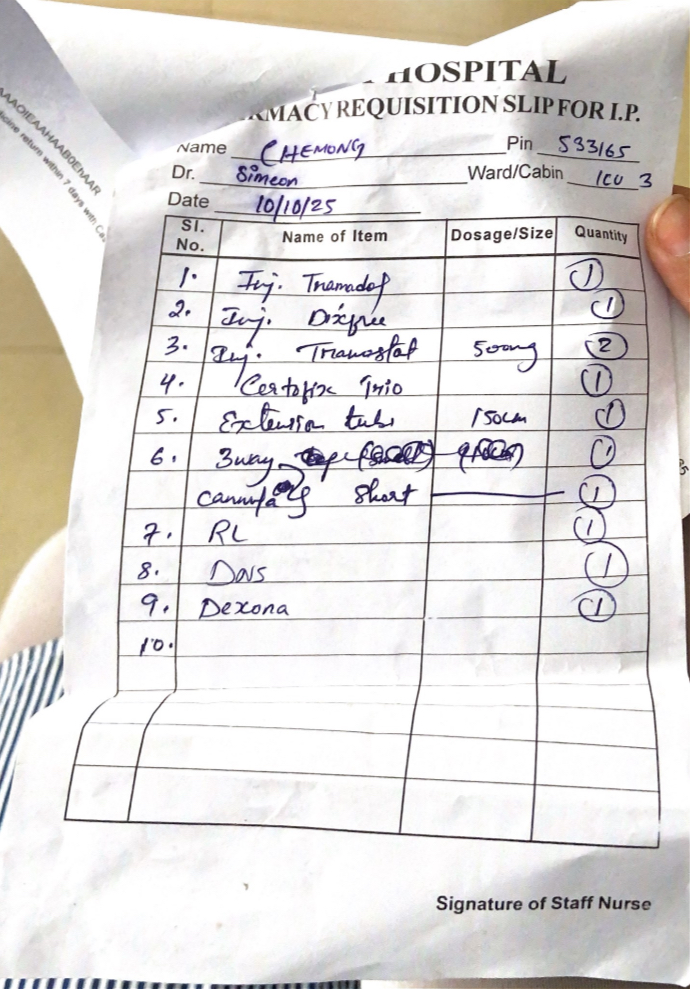 HOSPITAL
PHARMACY REQUISITION SLIP FOR I.P.
Name CHEMONG Pin 533165
Dr. Simeon Ward/Cabin ICU 3
Date 10/10/25
Sl. No. Name of Item Dosage/Size Quantity
1. Inj. Tramadol 1
2. Inj. Dixfree 1
3. Inj. Tranostat 500mg 2
4. Certofix Trio 1
5. Extension tube 150cm 1
6. 3way 1
cannula short 1
7. RL 1
8. DNS 1
9. Dexona 1
10.
Signature of Staff Nurse
AAAOIEAAHAABOENAAR
dicine return within 7 days with Ca